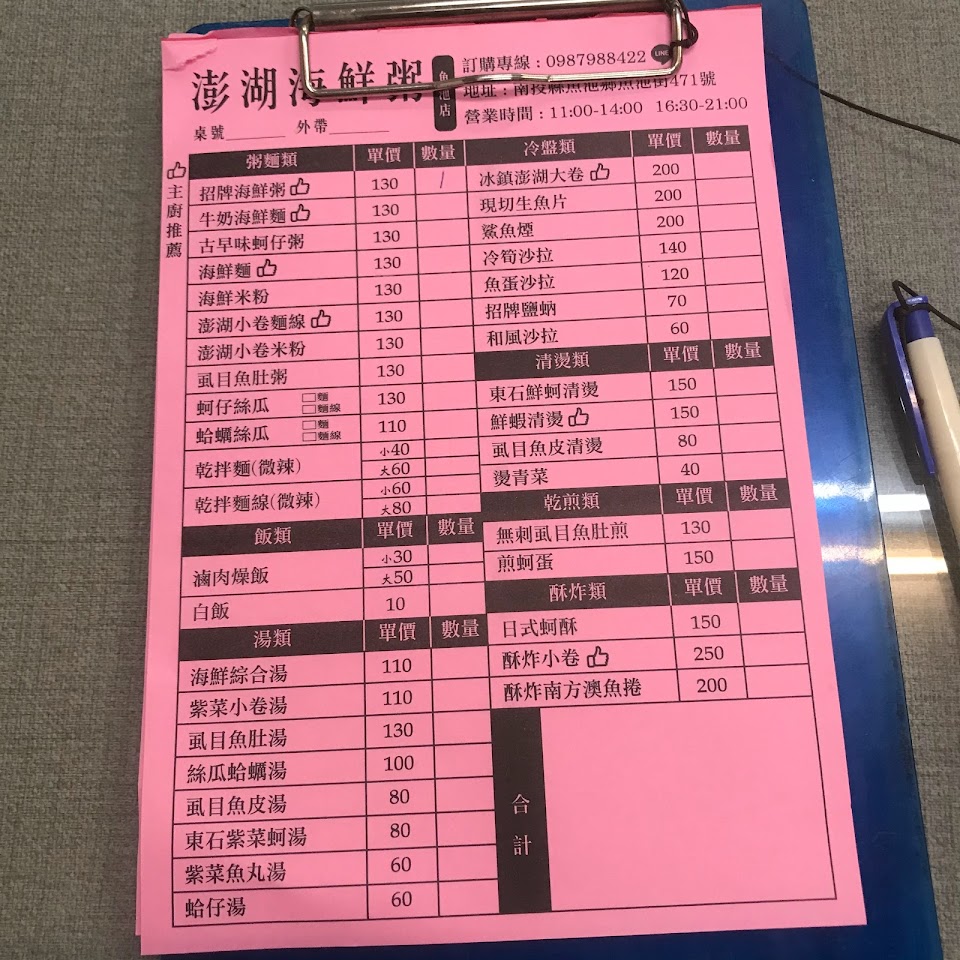 澎湖海鮮粥 魚池店
訂購專線:0987988422 LINE
地址:南投縣魚池鄉魚池街471號
營業時間:11:00-14:00 16:30-21:00
桌號 外帶
主廚推薦
粥麵類 單價 數量
招牌海鮮粥 130 /
牛奶海鮮麵 130
古早味蚵仔粥 130
海鮮麵 130
海鮮米粉 130
澎湖小卷麵線 130
澎湖小卷米粉 130
虱目魚肚粥 130
蚵仔絲瓜 □麵 □麵線 130
蛤蠣絲瓜 □麵 □麵線 110
乾拌麵(微辣) 小40 大60
乾拌麵線(微辣) 小60 大80
飯類 單價 數量
滷肉燥飯 小30 大50
白飯 10
湯類 單價 數量
海鮮綜合湯 110
紫菜小卷湯 110
虱目魚肚湯 130
絲瓜蛤蠣湯 100
虱目魚皮湯 80
東石紫菜蚵湯 80
紫菜魚丸湯 60
蛤仔湯 60
冷盤類 單價 數量
冰鎮澎湖大卷 200
現切生魚片 200
鯊魚煙 200
冷筍沙拉 140
魚蛋沙拉 120
招牌鹽蚋 70
和風沙拉 60
清燙類 單價 數量
東石鮮蚵清燙 150
鮮蝦清燙 150
虱目魚皮清燙 80
燙青菜 40
乾煎類 單價 數量
無刺虱目魚肚煎 130
煎蚵蛋 150
酥炸類 單價 數量
日式蚵酥 150
酥炸小卷 250
酥炸南方澳魚捲 200
合計